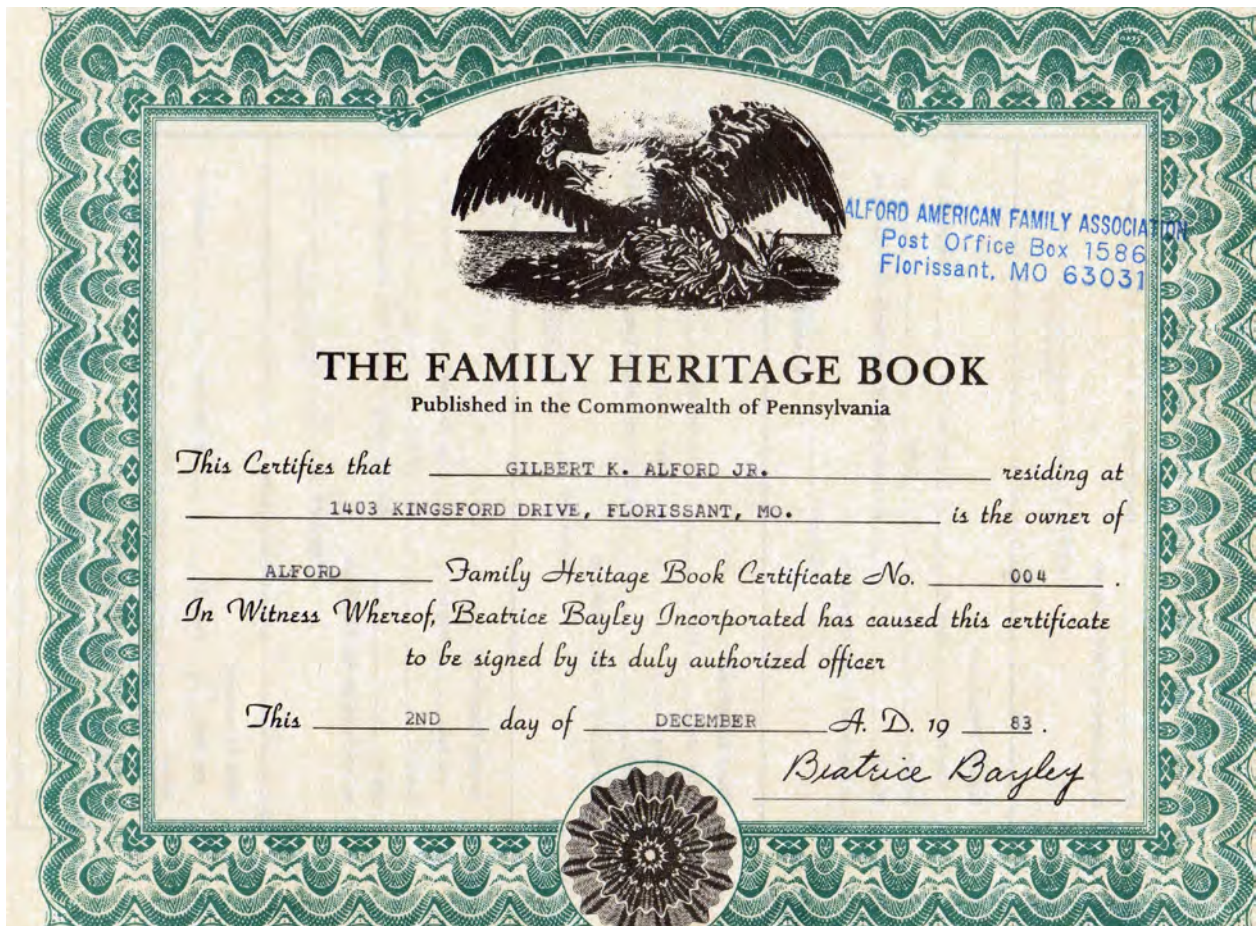 ALFORD AMERICAN FAMILY ASSOCIATION
Post Office Box 1586
Florissant, MO 63031
THE FAMILY HERITAGE BOOK
Published in the Commonwealth of Pennsylvania
This Certifies that GILBERT K. ALFORD JR. residing at
1403 KINGSFORD DRIVE, FLORISSANT, MO. is the owner of
ALFORD Family Heritage Book Certificate No. 004 .
In Witness Whereof, Beatrice Bayley Incorporated has caused this certificate
to be signed by its duly authorized officer
This 2ND day of DECEMBER A. D. 19 83 .
Beatrice Bayley